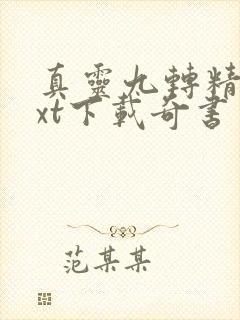 真靈九轉精
xt下載奇書
范某某